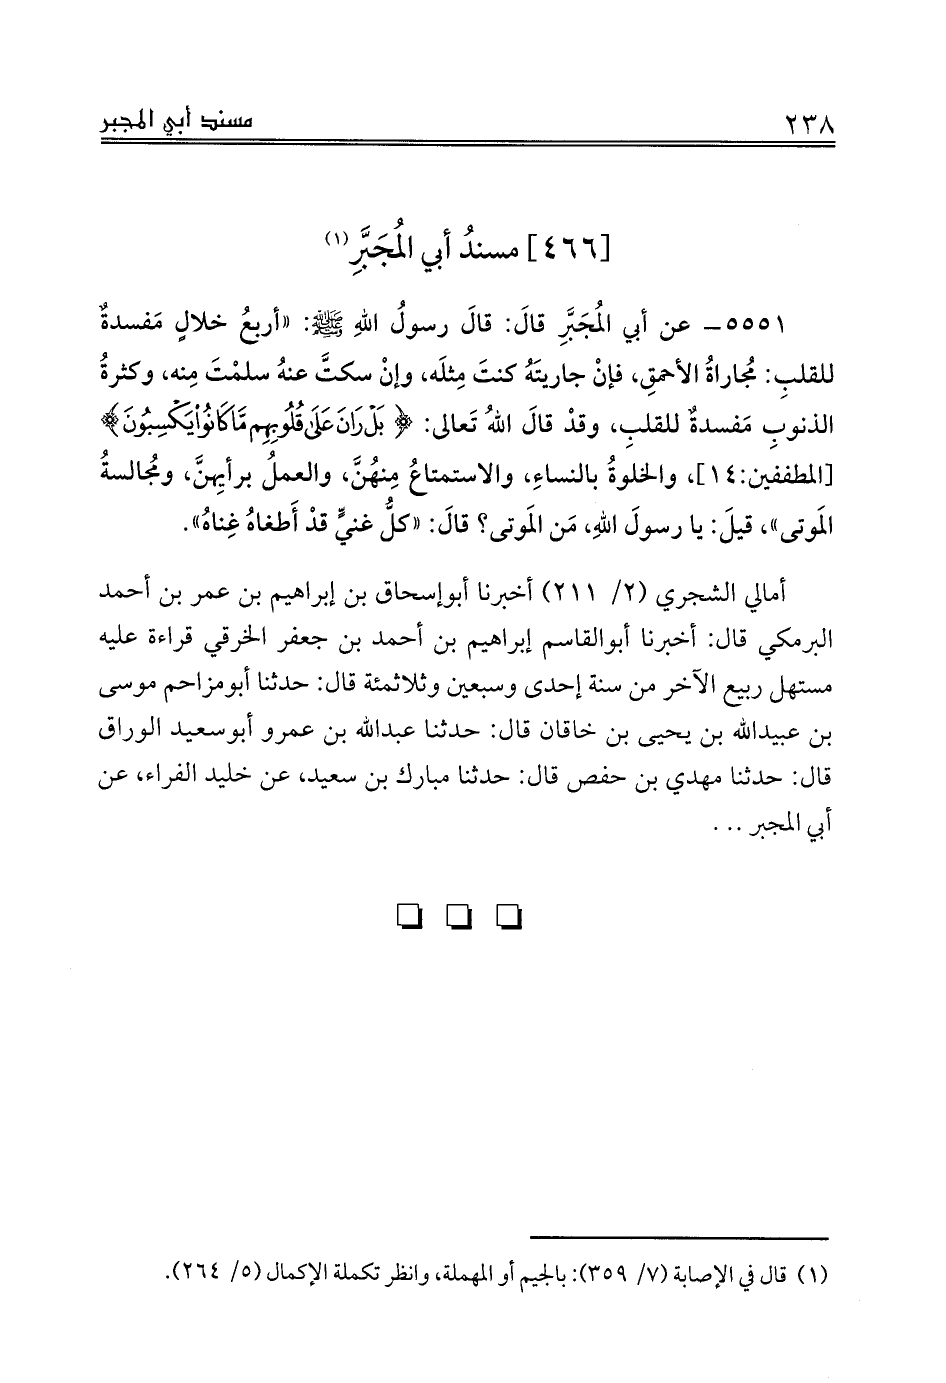 ٢٣٨ مسند أبي المجبر
[٤٦٦] مسندُ أبي المُجَبَّرِ (١)
٥٥٥١– عن أبي المُجَبَّرِ قالَ: قالَ رسولُ اللهِ ﷺ: «أربعُ خلالٍ مَفسدةٌ
للقلبِ: مُجاراةُ الأحمقِ، فإنْ جاريتَهُ كنتَ مِثلَه، وإنْ سكتَّ عنهُ سلمْتَ مِنه، وكثرةُ
الذنوبِ مَفسدةٌ للقلبِ، وقدْ قالَ اللهُ تَعالى: ﴿بَلْ رَانَ عَلَىٰ قُلُوبِهِم مَّا كَانُوا۟ يَكْسِبُونَ﴾
[المطففين:١٤]، والخلوةُ بالنساءِ، والاستمتاعُ مِنهُنَّ، والعملُ برأيِهنَّ، ومُجالسةُ
المَوتى»، قيلَ: يا رسولَ اللهِ، مَن المَوتى؟ قالَ: «كلُّ غنيٍّ قدْ أَطغاهُ غِناهُ».
أمالي الشجري (٢/ ٢١١) أخبرنا أبوإسحاق بن إبراهيم بن عمر بن أحمد
البرمكي قال: أخبرنا أبوالقاسم إبراهيم بن أحمد بن جعفر الخرقي قراءة عليه
مستهل ربيع الآخر من سنة إحدى وسبعين وثلاثمئة قال: حدثنا أبومزاحم موسى
بن عبيدالله بن يحيى بن خاقان قال: حدثنا عبدالله بن عمرو أبوسعيد الوراق
قال: حدثنا مهدي بن حفص قال: حدثنا مبارك بن سعيد، عن خليد الفراء، عن
أبي المجبر ...
(١) قال في الإصابة (٧/ ٣٥٩): بالجيم أو المهملة، وانظر تكملة الإكمال (٥/ ٢٦٤).